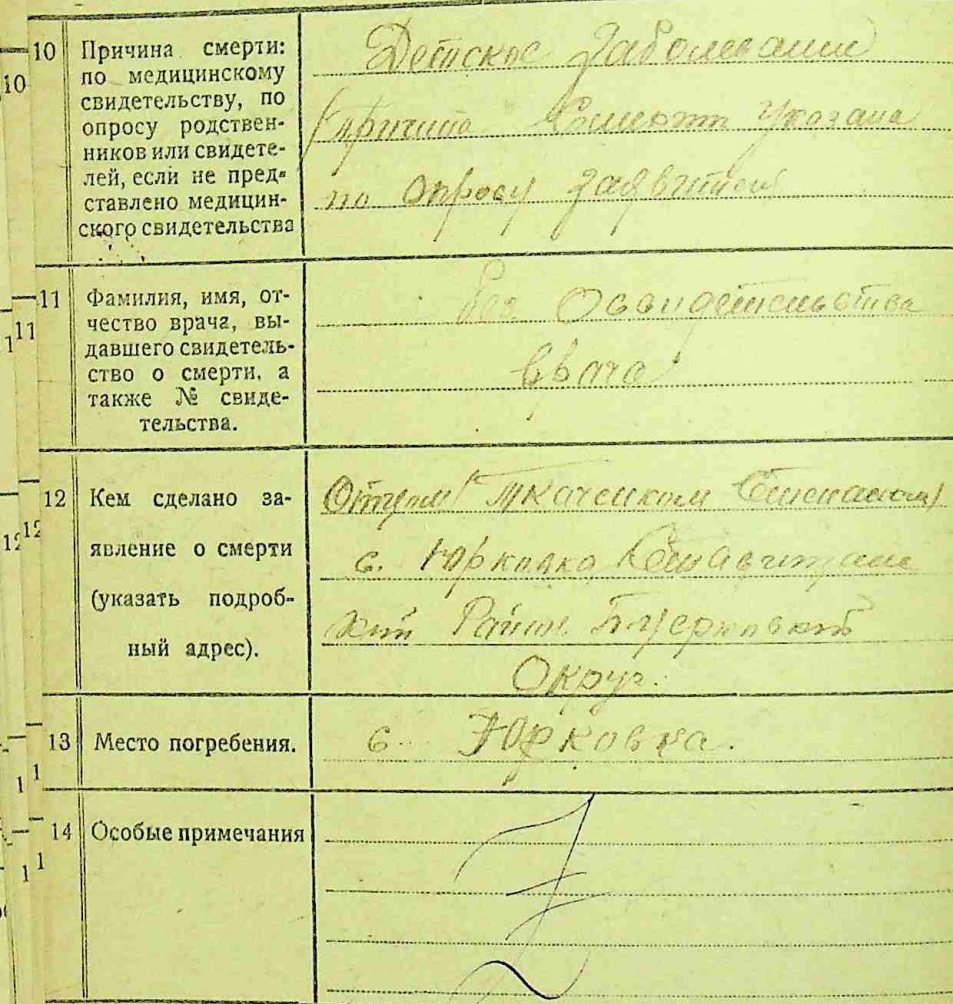 10
Причина смерти:
по медицинскому
свидетельству, по
опросу родствен-
ников или свидете-
лей, если не пред-
ставлено медицин-
ского свидетельства
Детское Заболевание
(причина Смерти указана
по Опросу Заявителя
11
Фамилия, имя, от-
чество врача, вы-
давшего свидетель-
ство о смерти, а
также № свиде-
тельства.
без Освидетельства
врача
12
Кем сделано за-
явление о смерти
(указать подроб-
ный адрес).
Отцом Ткаченком Степаном)
с. Юрковка
Район
Округ.
13
Место погребения.
с. Юрковка.
14
Особые примечания
10
11
12